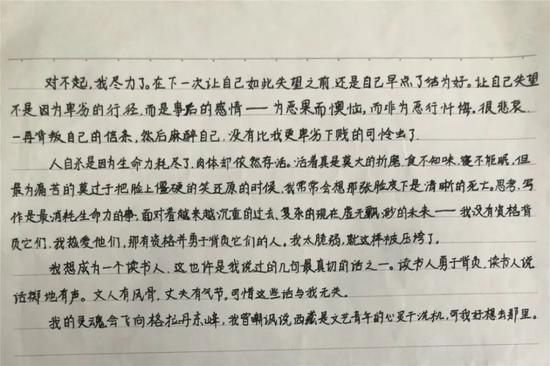 对不起,我尽力了。在下一次让自己如此失望之前,还是自己早点了结为好。让自己失望
不是因为卑劣的行径,而是事后的感情——为恶果而懊恼,而非为恶行忏悔。很悲哀,
一再背叛自己的信条,然后麻醉自己,没有比我更卑劣下贱的可怜虫了。
人自杀是因为生命力耗尽了,肉体却依然存活。活着真是莫大的折磨,食不知味,寝不能眠,但
最为痛苦的莫过于把脸上僵硬的笑还原的时候,我常常会想那张脸皮下是清晰的死亡。思考、写
作是最消耗生命力的事,面对着越来越沉重的过去、复杂的现在、虚无飘渺的未来——我没有资格背
负它们,我热爱他们,那有资格并勇于背负它们的人。我太脆弱,就这样被压垮了。
我想成为一个读书人,这也许是我说过的几句最真切的话之一。读书人勇于背负,读书人说
话掷地有声。文人有风骨,丈夫有气节,可惜这些话与我无关。
我的灵魂会飞向格拉丹东峰,我曾嘲讽说西藏是文艺青年的心灵干洗机,可我好想去那里。